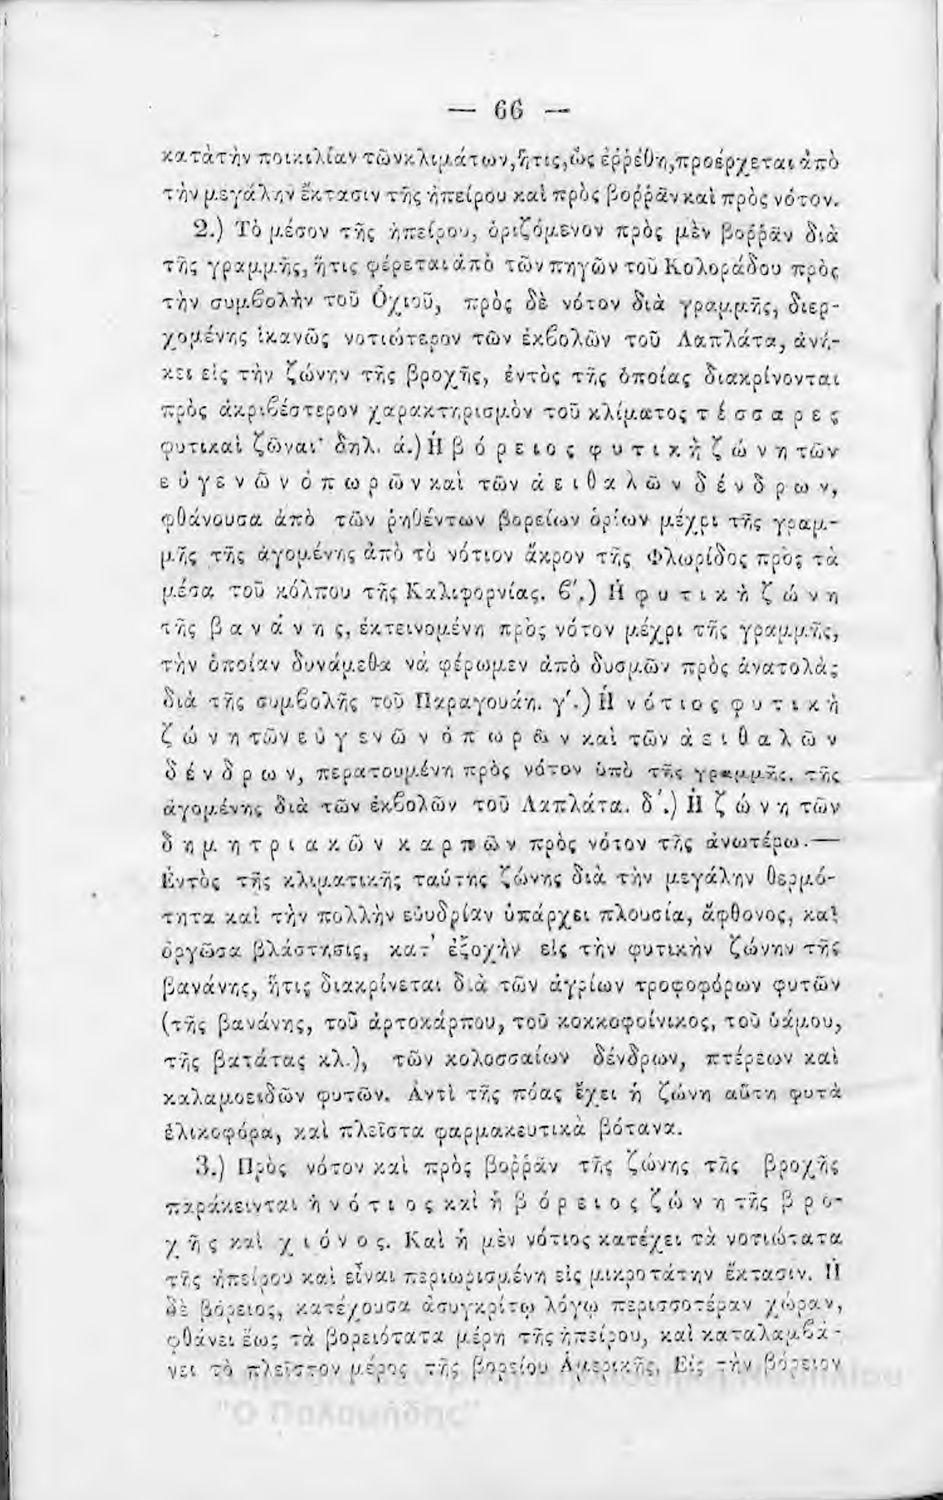 — 66 —
κατὰ τὴν ποικιλίαν τῶν κλιμάτων, ἥτις, ὡς ἐῤῥέθη, προέρχεται ἀπὸ
τὴν μεγάλην ἔκτασιν τῆς ἠπείρου καὶ πρὸς βοῤῥᾶν καὶ πρὸς νότον.
2.) Τὸ μέσον τῆς ἠπείρου, ὁριζόμενον πρὸς μὲν βοῤῥᾶν διὰ
τῆς γραμμῆς, ἥτις φέρεται ἀπὸ τῶν πηγῶν τοῦ Κολοράδου πρὸς
τὴν συμβολὴν τοῦ Ὀχιοῦ, πρὸς δὲ νότον διὰ γραμμῆς, διερ-
χομένης ἱκανῶς νοτιώτερον τῶν ἐκβολῶν τοῦ Λαπλάτα, ἀνή-
κει εἰς τὴν ζώνην τῆς βροχῆς, ἐντὸς τῆς ὁποίας διακρίνονται
πρὸς ἀκριβέστερον χαρακτηρισμὸν τοῦ κλίματος τέσσαρες
φυτικαὶ ζῶναι· δηλ. ά.) Ἡ βόρειος φυτικὴ ζώνη τῶν
εὐγενῶν ὀπωρῶν καὶ τῶν ἀειθαλῶν δένδρων,
φθάνουσα ἀπὸ τῶν ῥηθέντων βορείων ὁρίων μέχρι τῆς γραμ-
μῆς τῆς ἀγομένης ἀπὸ τὸ νότιον ἄκρον τῆς Φλωρίδος πρὸς τὰ
μέσα τοῦ κόλπου τῆς Καλιφορνίας. β΄.) Ἡ φυτικὴ ζώνη
τῆς βανάνης, ἐκτεινομένη πρὸς νότον μέχρι τῆς γραμμῆς,
τὴν ὁποίαν δυνάμεθα νὰ φέρωμεν ἀπὸ δυσμῶν πρὸς ἀνατολὰς
διὰ τῆς συμβολῆς τοῦ Παραγουάη. γ΄.) Ἡ νότιος φυτικὴ
ζώνη τῶν εὐγενῶν ὀπωρῶν καὶ τῶν ἀειθαλῶν
δένδρων, περατουμένη πρὸς νότον ὑπὸ τῆς γραμμῆς, τῆς
ἀγομένης διὰ τῶν ἐκβολῶν τοῦ Λαπλάτα. δ΄.) Ἡ ζώνη τῶν
δημητριακῶν καρπῶν πρὸς νότον τῆς ἀνωτέρω.—
Ἐντὸς τῆς κλιματικῆς ταύτης ζώνης διὰ τὴν μεγάλην θερμό-
τητα καὶ τὴν πολλὴν εὐυδρίαν ὑπάρχει πλουσία, ἄφθονος, καὶ
ὀργῶσα βλάστησις, κατ' ἐξοχὴν εἰς τὴν φυτικὴν ζώνην τῆς
βανάνης, ἥτις διακρίνεται διὰ τῶν ἀγρίων τροφοφόρων φυτῶν
(τῆς βανάνης, τοῦ ἀρτοκάρπου, τοῦ κοκκοφοίνικος, τοῦ ὑάμου,
τῆς βατάτας κλ.), τῶν κολοσσαίων δένδρων, πτέρεων καὶ
καλαμοειδῶν φυτῶν. Ἀντὶ τῆς πόας ἔχει ἡ ζώνη αὕτη φυτὰ
ἑλικοφόρα, καὶ πλεῖστα φαρμακευτικὰ βότανα.
3.) Πρὸς νότον καὶ πρὸς βοῤῥᾶν τῆς ζώνης τῆς βροχῆς
παράκεινται ἡ νότιος καὶ ἡ βόρειος ζώνη τῆς βρο-
χῆς καὶ χιόνος. Καὶ ἡ μὲν νότιος κατέχει τὰ νοτιώτατα
τῆς ἠπείρου καὶ εἶναι περιωρισμένη εἰς μικροτάτην ἔκτασιν. Ἡ
δὲ βόρειος, κατέχουσα ἀσυγκρίτῳ λόγῳ περισσοτέραν χώραν,
φθάνει ἕως τὰ βορειότατα μέρη τῆς ἠπείρου, καὶ καταλαμβά-
νει τὸ πλεῖστον μέρος τῆς βορείου Ἀμερικῆς. Εἰς τὴν βόρειον
"Ο Παλαμήδης"